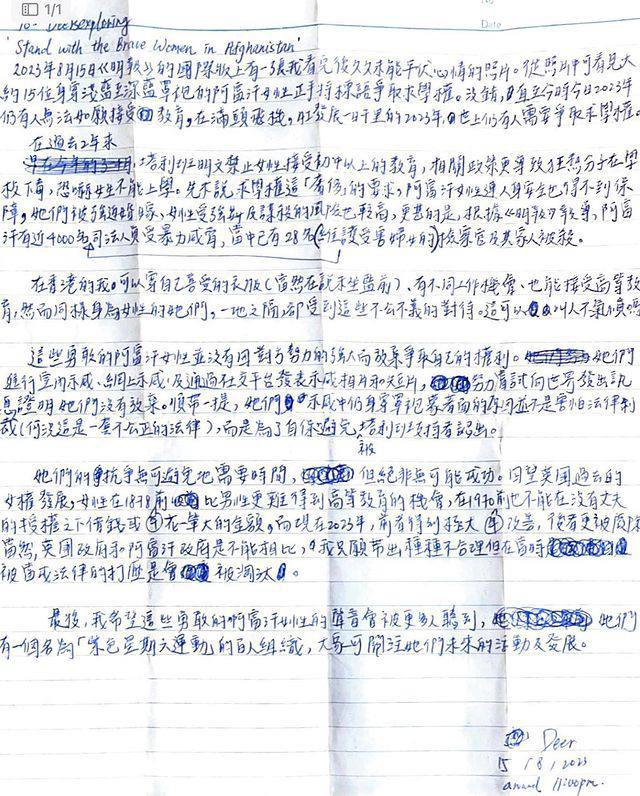 1/1
To- Deersexploring
Date
'Stand with the Brave Women in Afghanistan'
2023年8月15日《明報》的國際版上有一張我看完後久久未能平伏心情的照片。從照片中可看見大
約15位身穿淺藍至深藍罩袍的阿富汗女性正手持標語爭取求學權。沒錯,直至今時今日2023年
仍有人無法如願接受教育,在滿頭飛機,AI發展一日千里的2023年,世上仍有人需要爭取求學權。
在過去2年來
塔利班明文禁止女性接受初中以上的教育,相關政策更導致狂熱分子在學
校下毒,恐嚇女生不能上學。先不說求學權這「奢侈」的要求,阿富汗女性連人身安全也得不到保
障,她們被強迫婚嫁、女性受強姦及謀殺的風險也較高,更甚的是,根據《明報》報導,阿富
汗有近4000名司法人員受暴力威脅,當中已有28名(之位護受害婦女的)檢察官及其家人被殺。
在香港的我可以穿自己喜愛的衣服(當然在說未坐監前)、有不同工作機會、也能接受高等教
育,然而同樣身為女性的她們,一地之隔,卻受到這些不公不義的對待。這可以叫人不氣憤嗎
這些勇敢的阿富汗女性並沒有因對方勢力的強大而放棄爭取自己的權利。她們
進行室內示威、網上示威、及通過社交平台發表示威相片和短片,努力嘗試向世界發出訊
息證明她們沒有放棄。順帶一提,她們示威中仍身穿罩袍罩著面的原因並不是害怕法律制
裁(何況這是一套不公正的法律),而是為了自保避免被塔利班支持者認出。
她們的抗爭無可避免地需要時間,但絕非無可能成功。回望英國過去的
女權發展,女性在1878前比男性更難得到高等教育的機會,在1970前也不能在沒有丈夫
的授權之下借錢或花一筆大的金額,而現在2023年,前者得到極大改善,後者更被廢除
當然,英國政府和阿富汗政府是不能相比,我只願帶出種種不合理但在當時
被當成法律的打壓是會被淘汰。
最後,我希望這些勇敢的阿富汗女性的聲音會被更多人聽到,她們
有一個名為「紫色星期六運動」的百人組織,大家可關注她們未來的活動及發展。
Deer
15 / 8 / 2023
around 11:00pm.